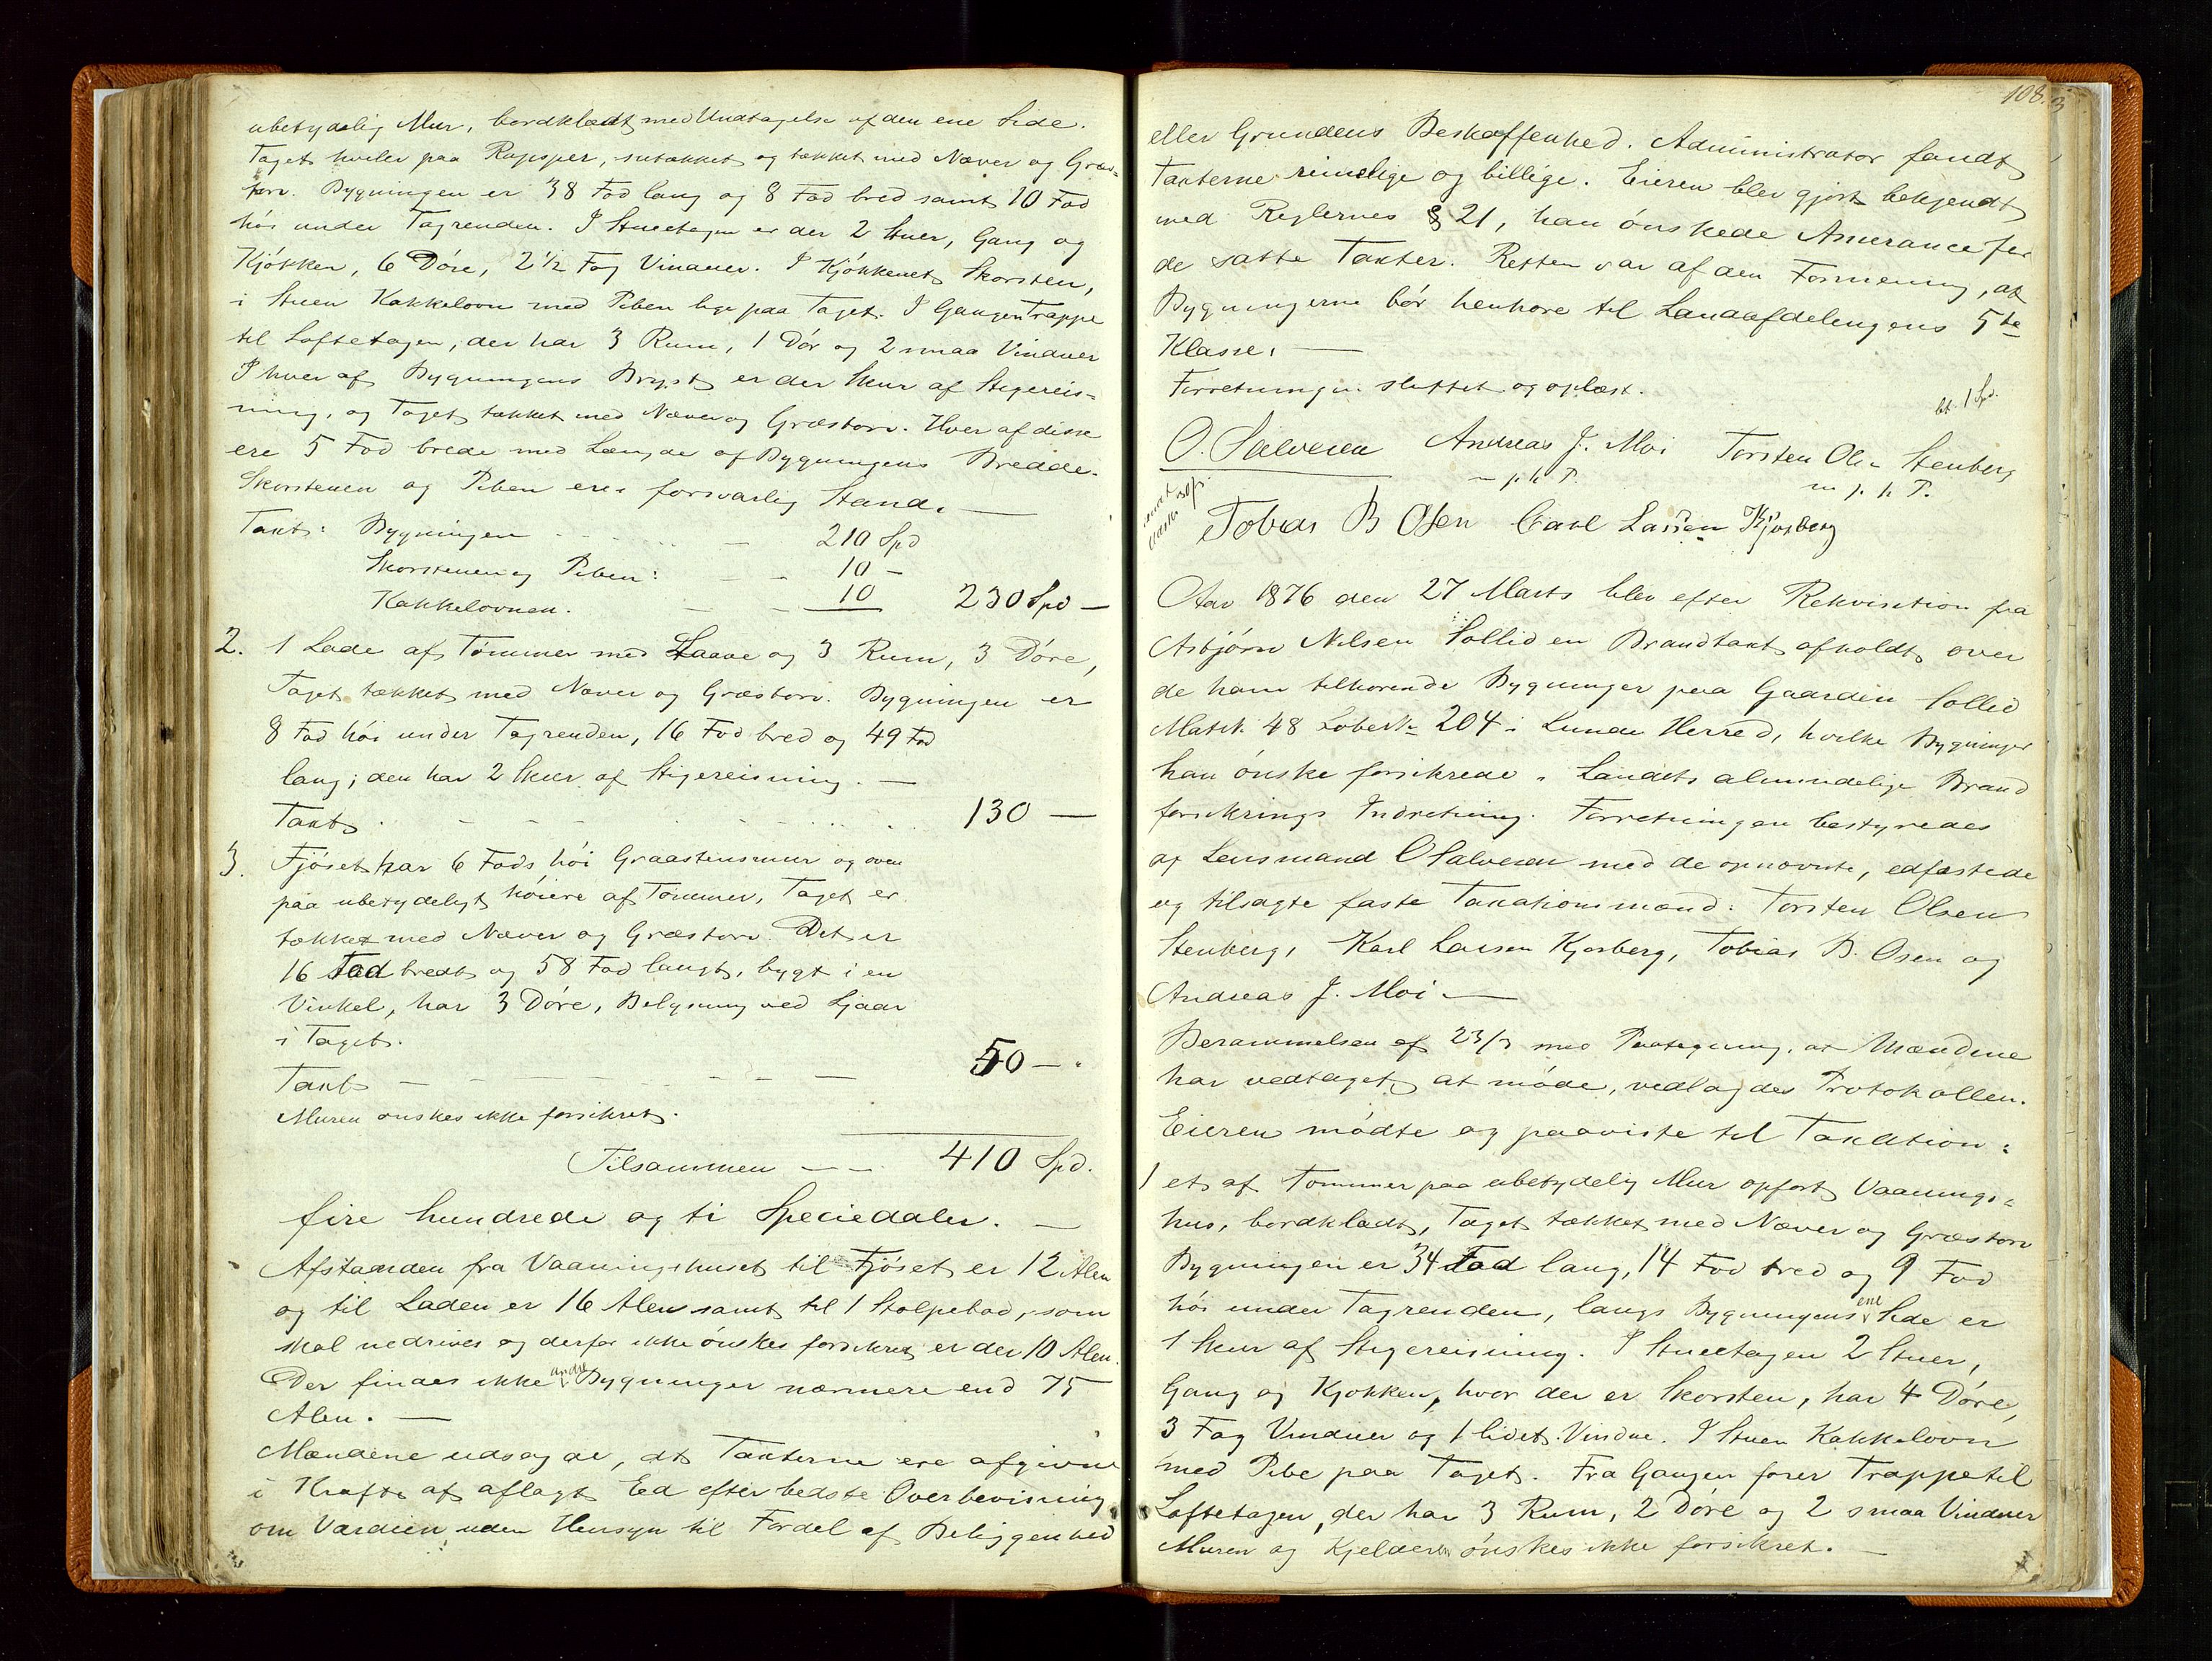 ubetydelig Mur, bordklædt med Undtagelse af den ene Side.
Taget hviler paa Rupsper, sutækket og tækket med Næver og Græs=
torv. Bygningen er 38 Fod lang og 8 Fod bred samt 10 Fod
høi under Tagrenden. I Stueetagen er der 2 Stuer, Gang og
Kjøkken, 6 Døre, 2 1/2 Fag Vinduer. I Kjøkkenet Skorsten,
i Stuen Kakkelovn med Piben lige paa Taget. I Gangen Trappe
til Loftetagen, der har 3 Rum, 1 Dør og 2 smaa Vinduer
I hver af Bygningens Bryst er der Skur af Stigereis=
ning, og Taget tækket med Næver og Græstorv. Hver af disse
ere 5 Fod brede med Længde af Bygningens Bredde.
Skorstenen og Piben ere i forsvarlig Stand. —
Taxt: Bygningen - - - 210 Spd
Skorstenen og Piben: - - 10 -
Kakkelovnen. - - 10 230 Spd —
2. 1 Lade af Tømmer med Laave og 3 Rum, 3 Døre,
Taget tækket med Næver og Græstorv. Bygningen er
8 Fod høi under Tagrenden, 16 Fod bred og 49 Fod
lang; den har 2 Skur af Stigereisning. —
Taxt - - - 130 —
3. Fjøset har 6 Fods høi Graastensmur og oven
paa ubetydeligt høiere af Tømmer, Taget er
tækket med Næver og Græstorv. Det er
16 Fod bredt og 58 Fod langt, bygt i en
Vinkel, har 3 Døre, Belysning ved Ljaar
i Taget.
Taxt - - - 50 —
Muren ønskes ikke forsikret.
Tilsammen - - 410 Spd.
fire hundrede og ti Speciedaler. —
Afstanden fra Vaaningshuset til Fjøset er 12 Alen
og til Laden er 16 Alen samt til 1 Stolpebod, som
skal nedrives og derfor ikke ønskes forsikret er der 10 Alen.
Der findes ikke andre Bygninger nærmere end 75
Alen. —
Mændene udsagde, at Taxterne ere afgivne
i Kraft af aflagt Ed efter bedste Overbevisning
om Værdien uden Hensyn til Fordel af Beliggenhed
108.
eller Grundens Beskaffenhed. Administrator fandt
Taxterne rimelige og billige. Eieren blev gjort bekjendt
med Reglernes § 21, han ønskede Assurance for
de satte Taxter. Retten var af den Formening, at
Bygningerne bør henhøre til Landafdelingens 5te
Klasse. —
Forretningen sluttet og oplæst.
bt. 1 Spd.
O. Salvesen Andreas J. Moi Torsten Olsen Stenberg
m p. h P. m p. h P.
Tobias B Osen Carl Lassen Kjørberg
Aar 1876 den 27 Marts blev efter Rekvisition fra
Asbjørn Nilsen Sollid en Brandtaxt afholdt over
de ham tilhørende Bygninger paa Gaarden Sollid
Matrk. 48 Løbenr. 204 i Lunde Herred, hvilke Bygninger
han ønske forsikrede i Landets almindelige Brand
forsikrings Indretning. Forretningen bestyredes
af Lensmand O Salvesen med de opnævnte, edfæstede
og tilsagte faste Taxationsmænd: Torsten Olsen
Stenberg, Karl Larsen Kjørberg, Tobias B. Osen og
Andreas J. Moi —
Berammelsen af 23/3 med Paategning, at Mændene
har vedtaget at møde, vedlagdes Protokollen.
Eieren mødte og paaviste til Taxation:
1 et af Tømmer paa ubetydelig Mur opført Vaanings=
hus, bordklædt, Taget tækket med Næver og Græstorv
Bygningen er 34 Fod lang, 14 Fod bred og 9 Fod
høi under Tagrenden, langs Bygningens ene Side er
1 Skur af Stigereisning. I Stueetagen 2 Stuer,
Gang og Kjøkken, hvor der er Skorsten, har 4 Døre,
3 Fag Vinduer og 1 lidet Vindue. I Stuen Kakkelovn
med Pibe paa Taget. Fra Gangen fører Trappe til
Loftetagen, der har 3 Rum, 2 Døre og 2 smaa Vinduer
Muren og Kjelderen ønskes ikke forsikret. —